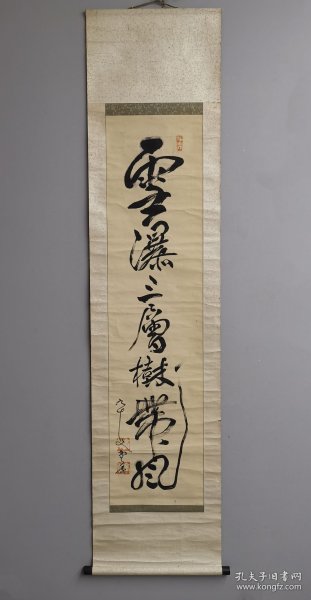 雲瀑三層樹帶風
九十
孔夫子旧书网
www.kongfz.com